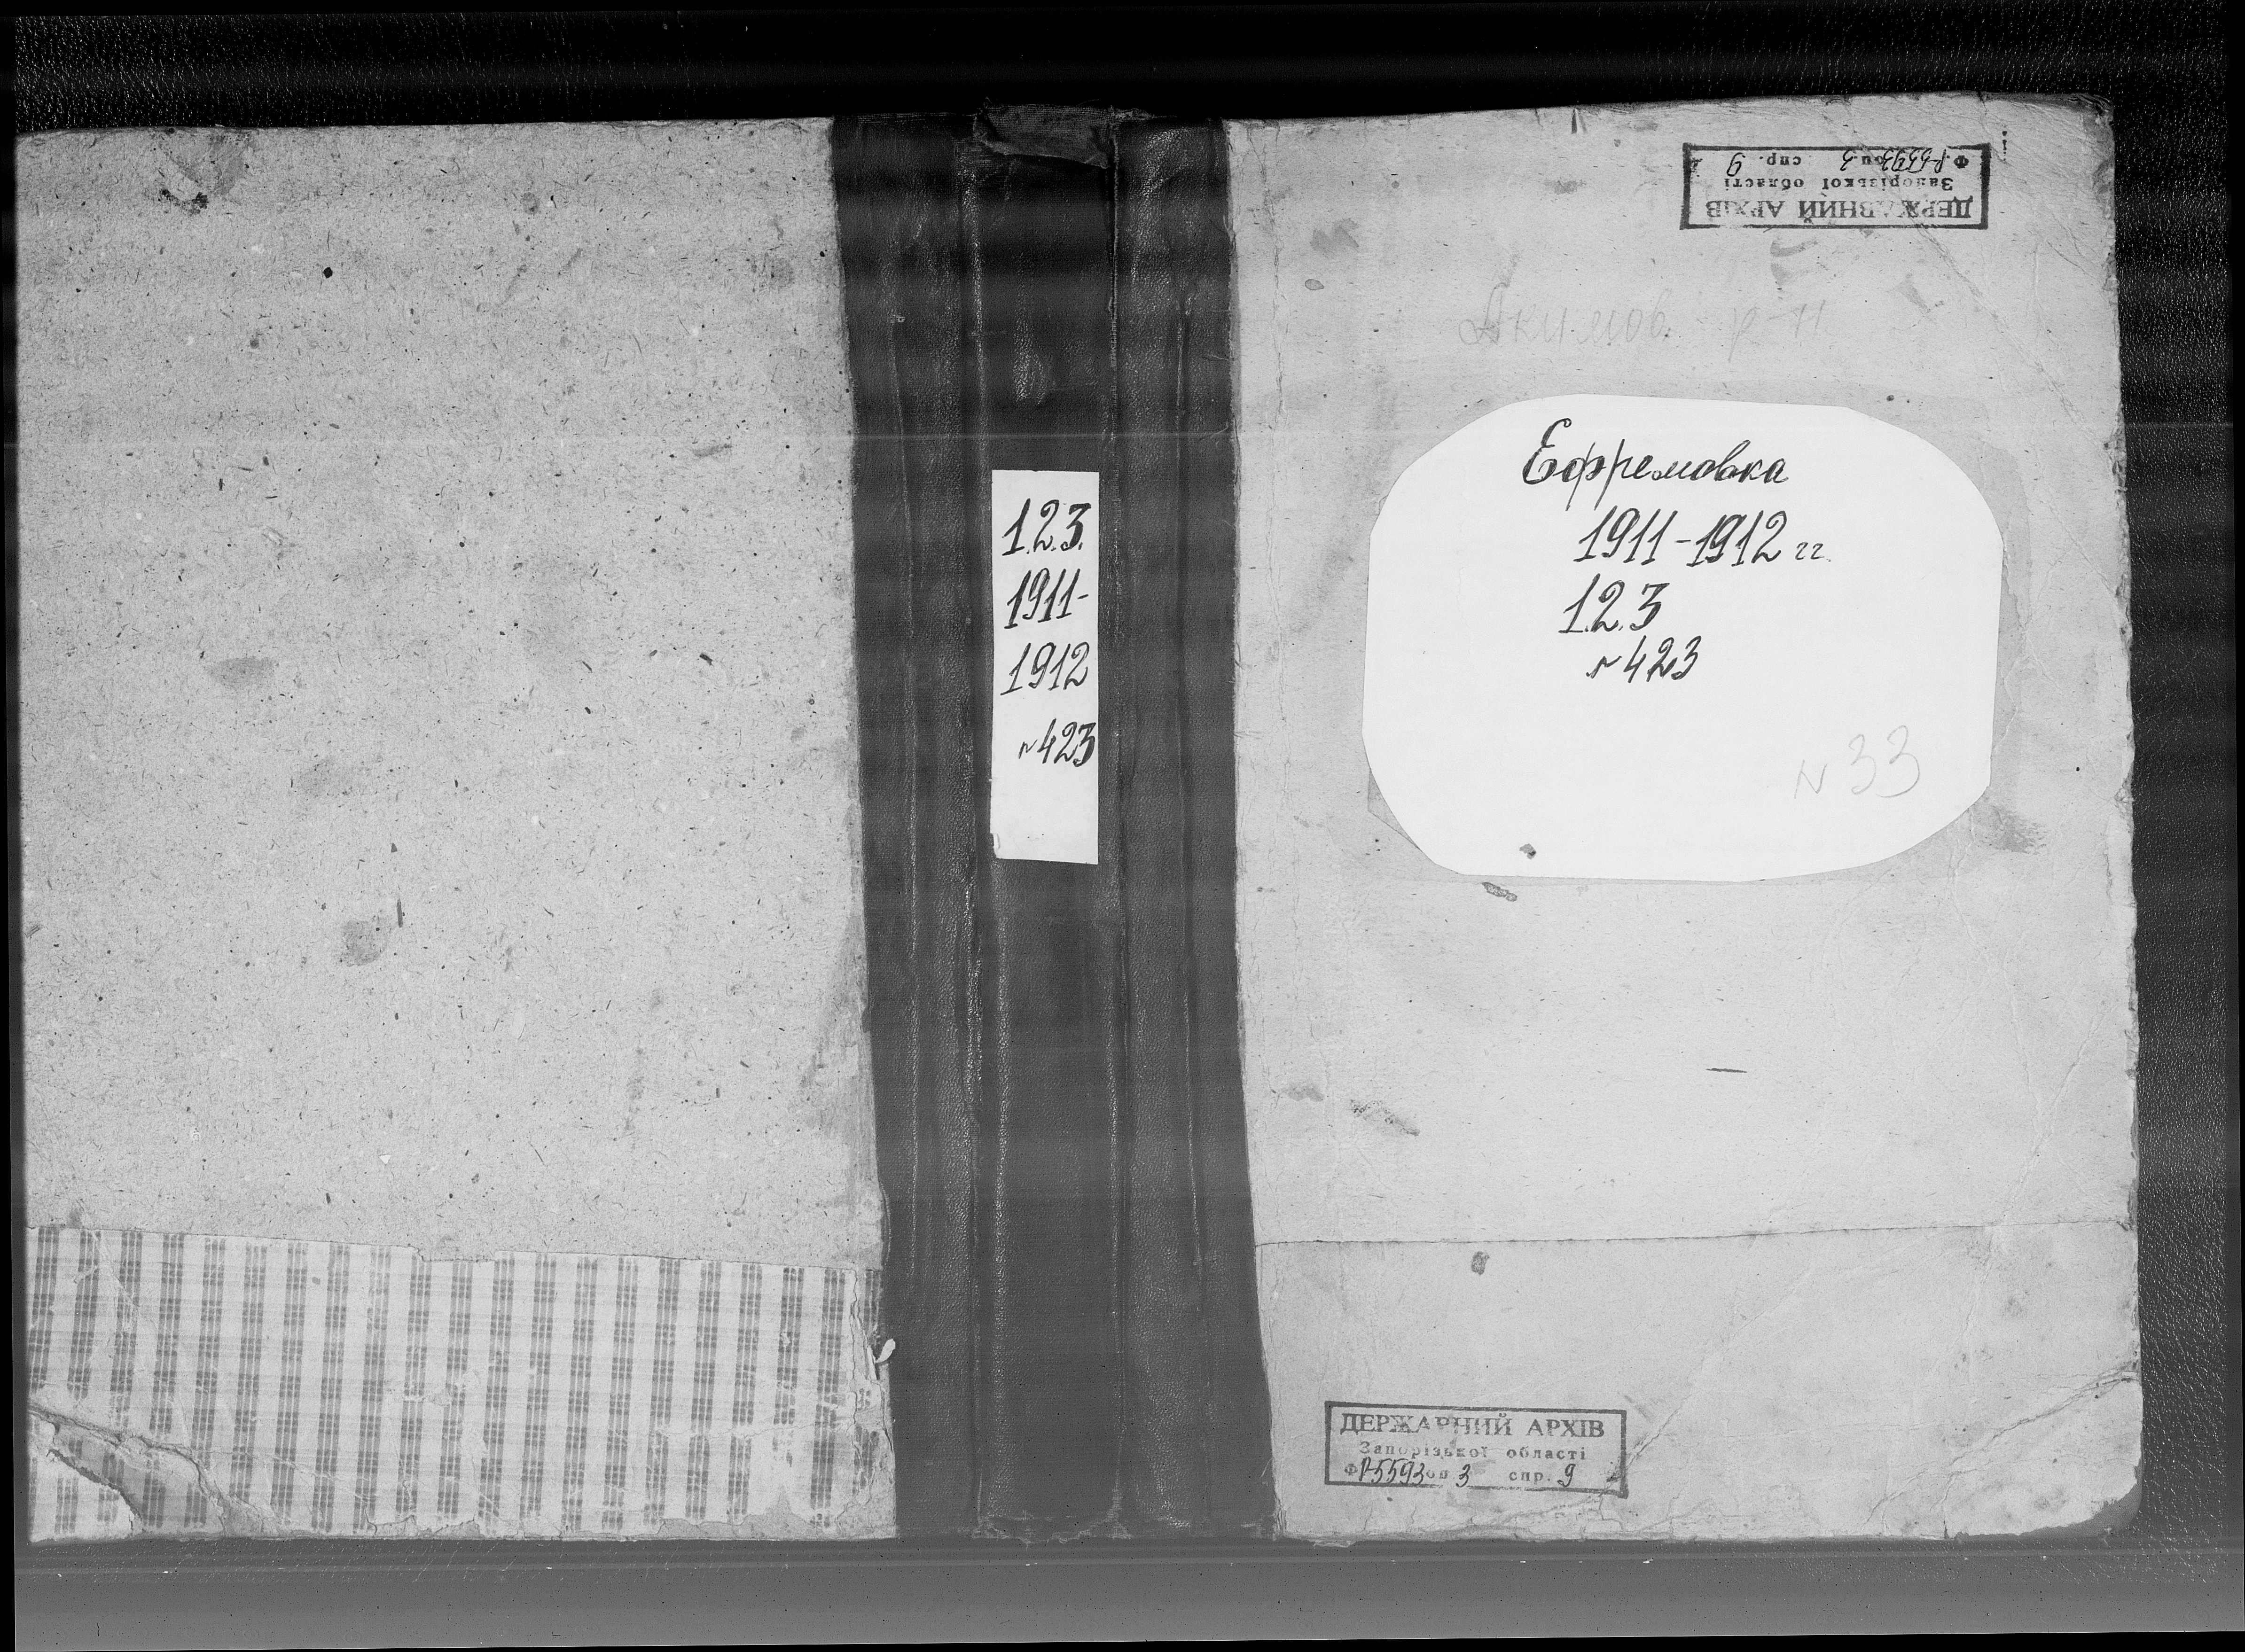 1.2.3.
1911-
1912
№423
ДЕРЖАВНИЙ АРХІВ
Запорізької області
Ф. Р-5593 оп. 3 спр. 9
Акимов. р-н
Ефремовка
1911-1912 гг.
1.2.3
№423
№33
ДЕРЖАВНИЙ АРХІВ
Запорізької області
Ф. Р-5593 оп. 3 спр. 9